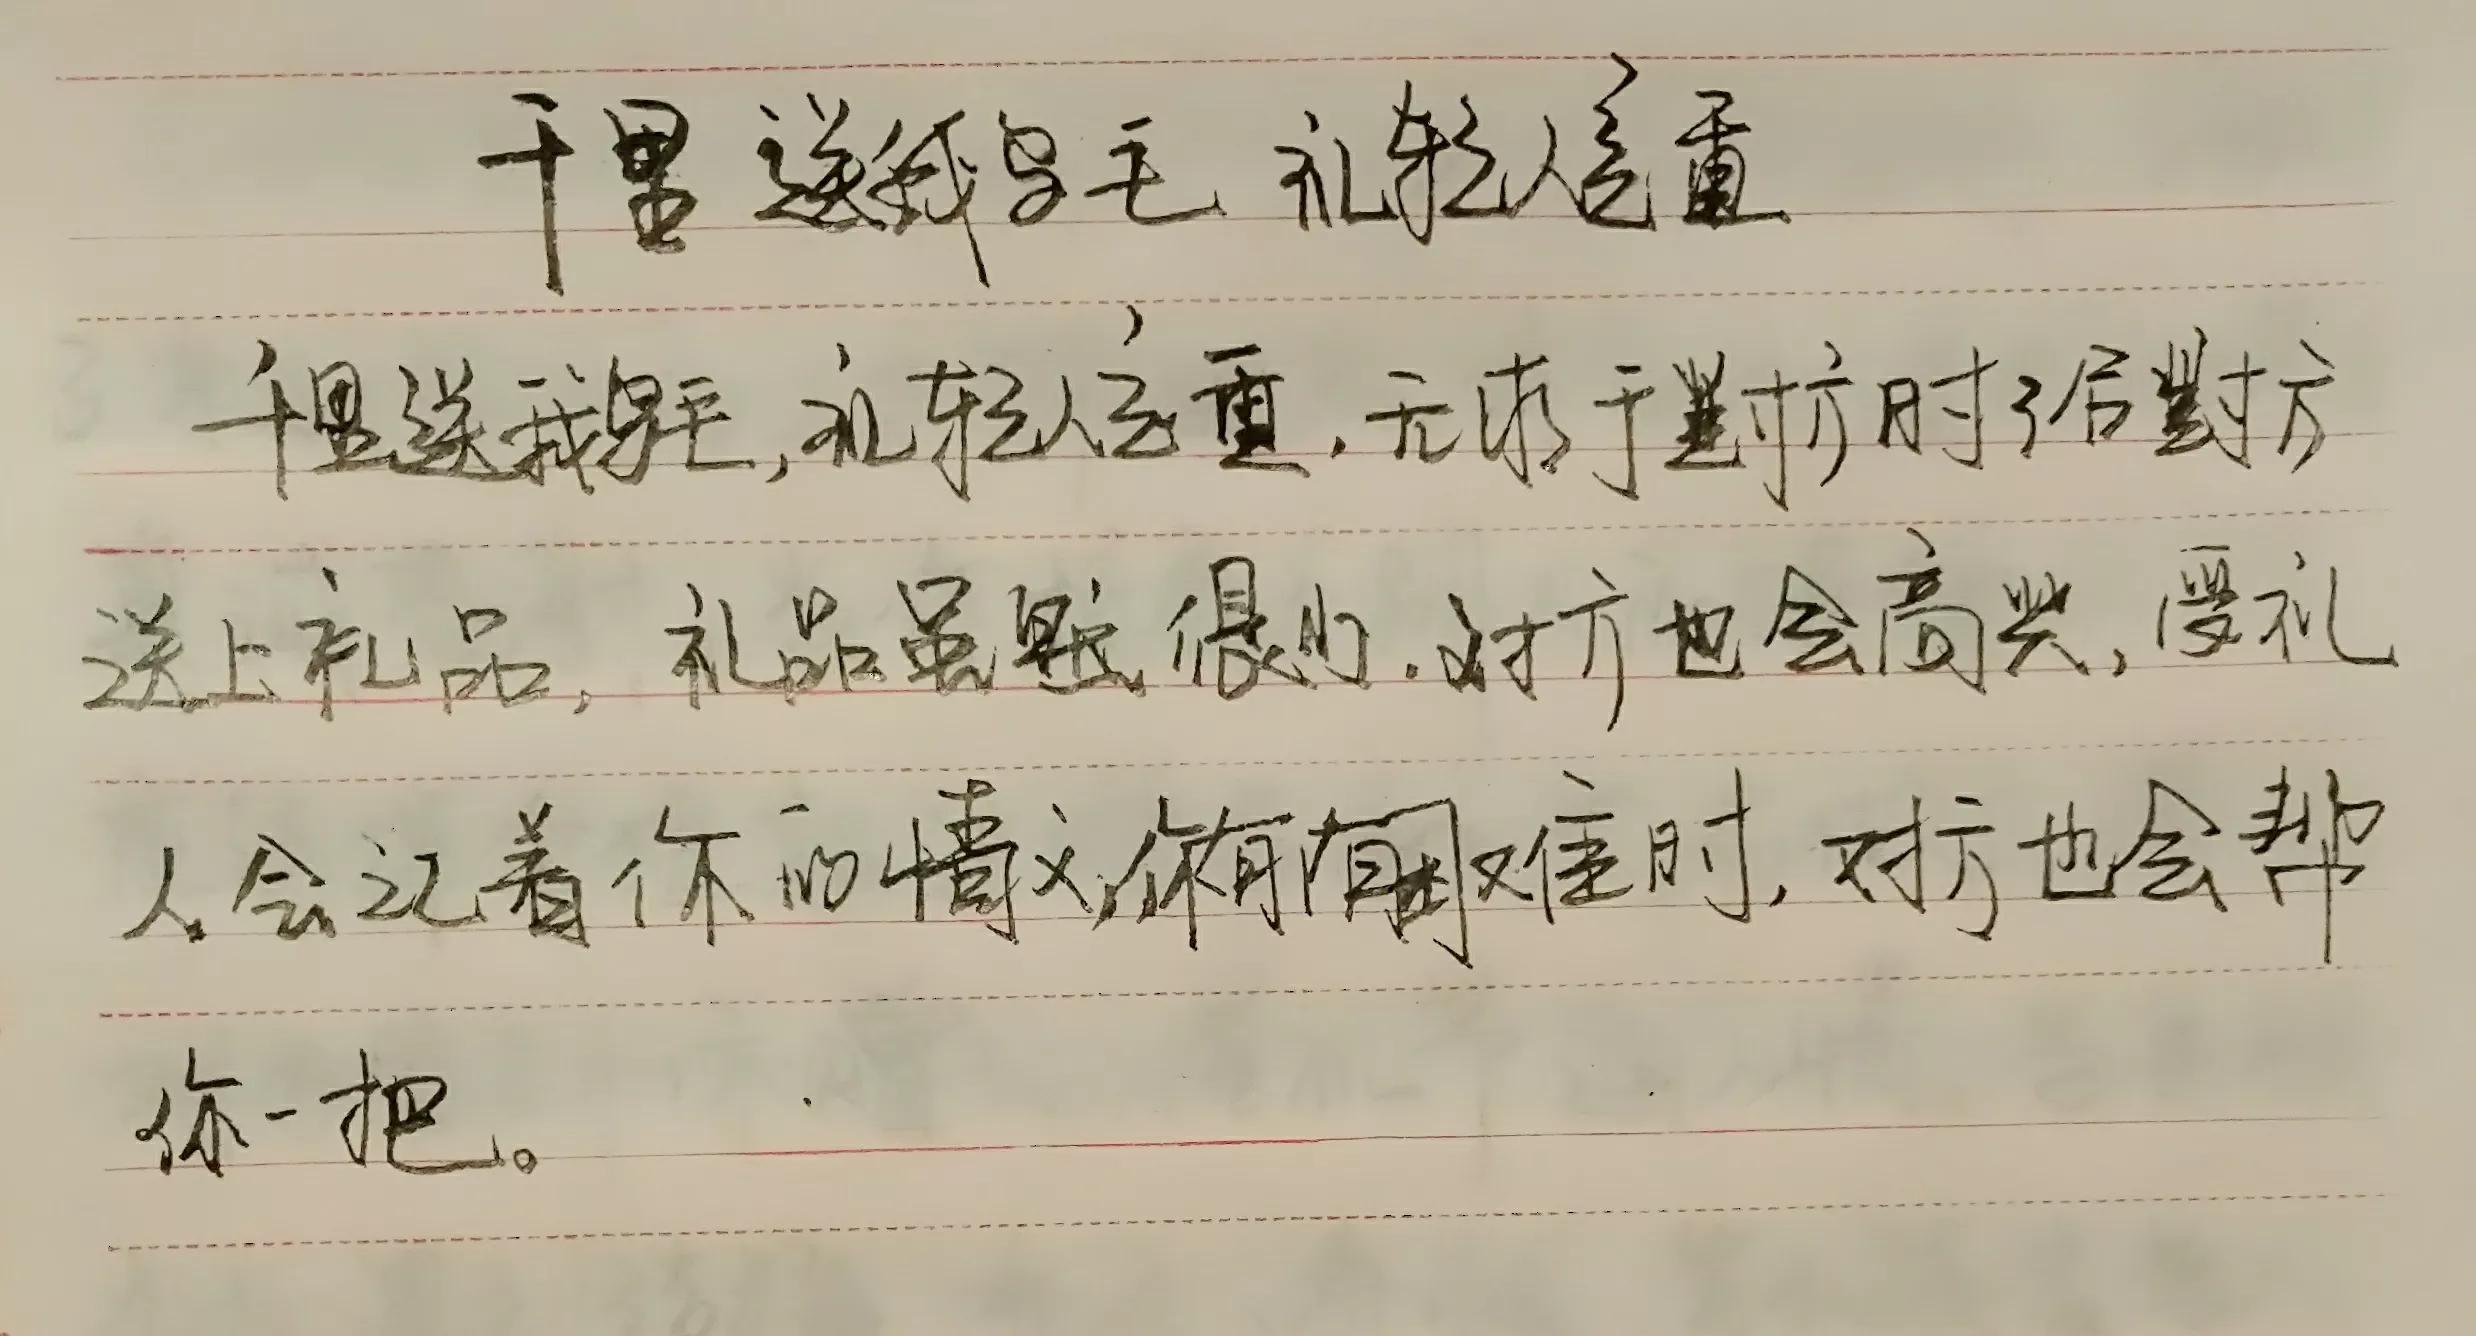 千里送鹅毛 礼轻人意重
千里送鹅毛,礼轻人意重.无求于對方时了后對方
送上礼品,礼品虽然很小.对方也会高兴,受礼
人会记着你的情义,你有有困难时,对方也会帮
你一把。